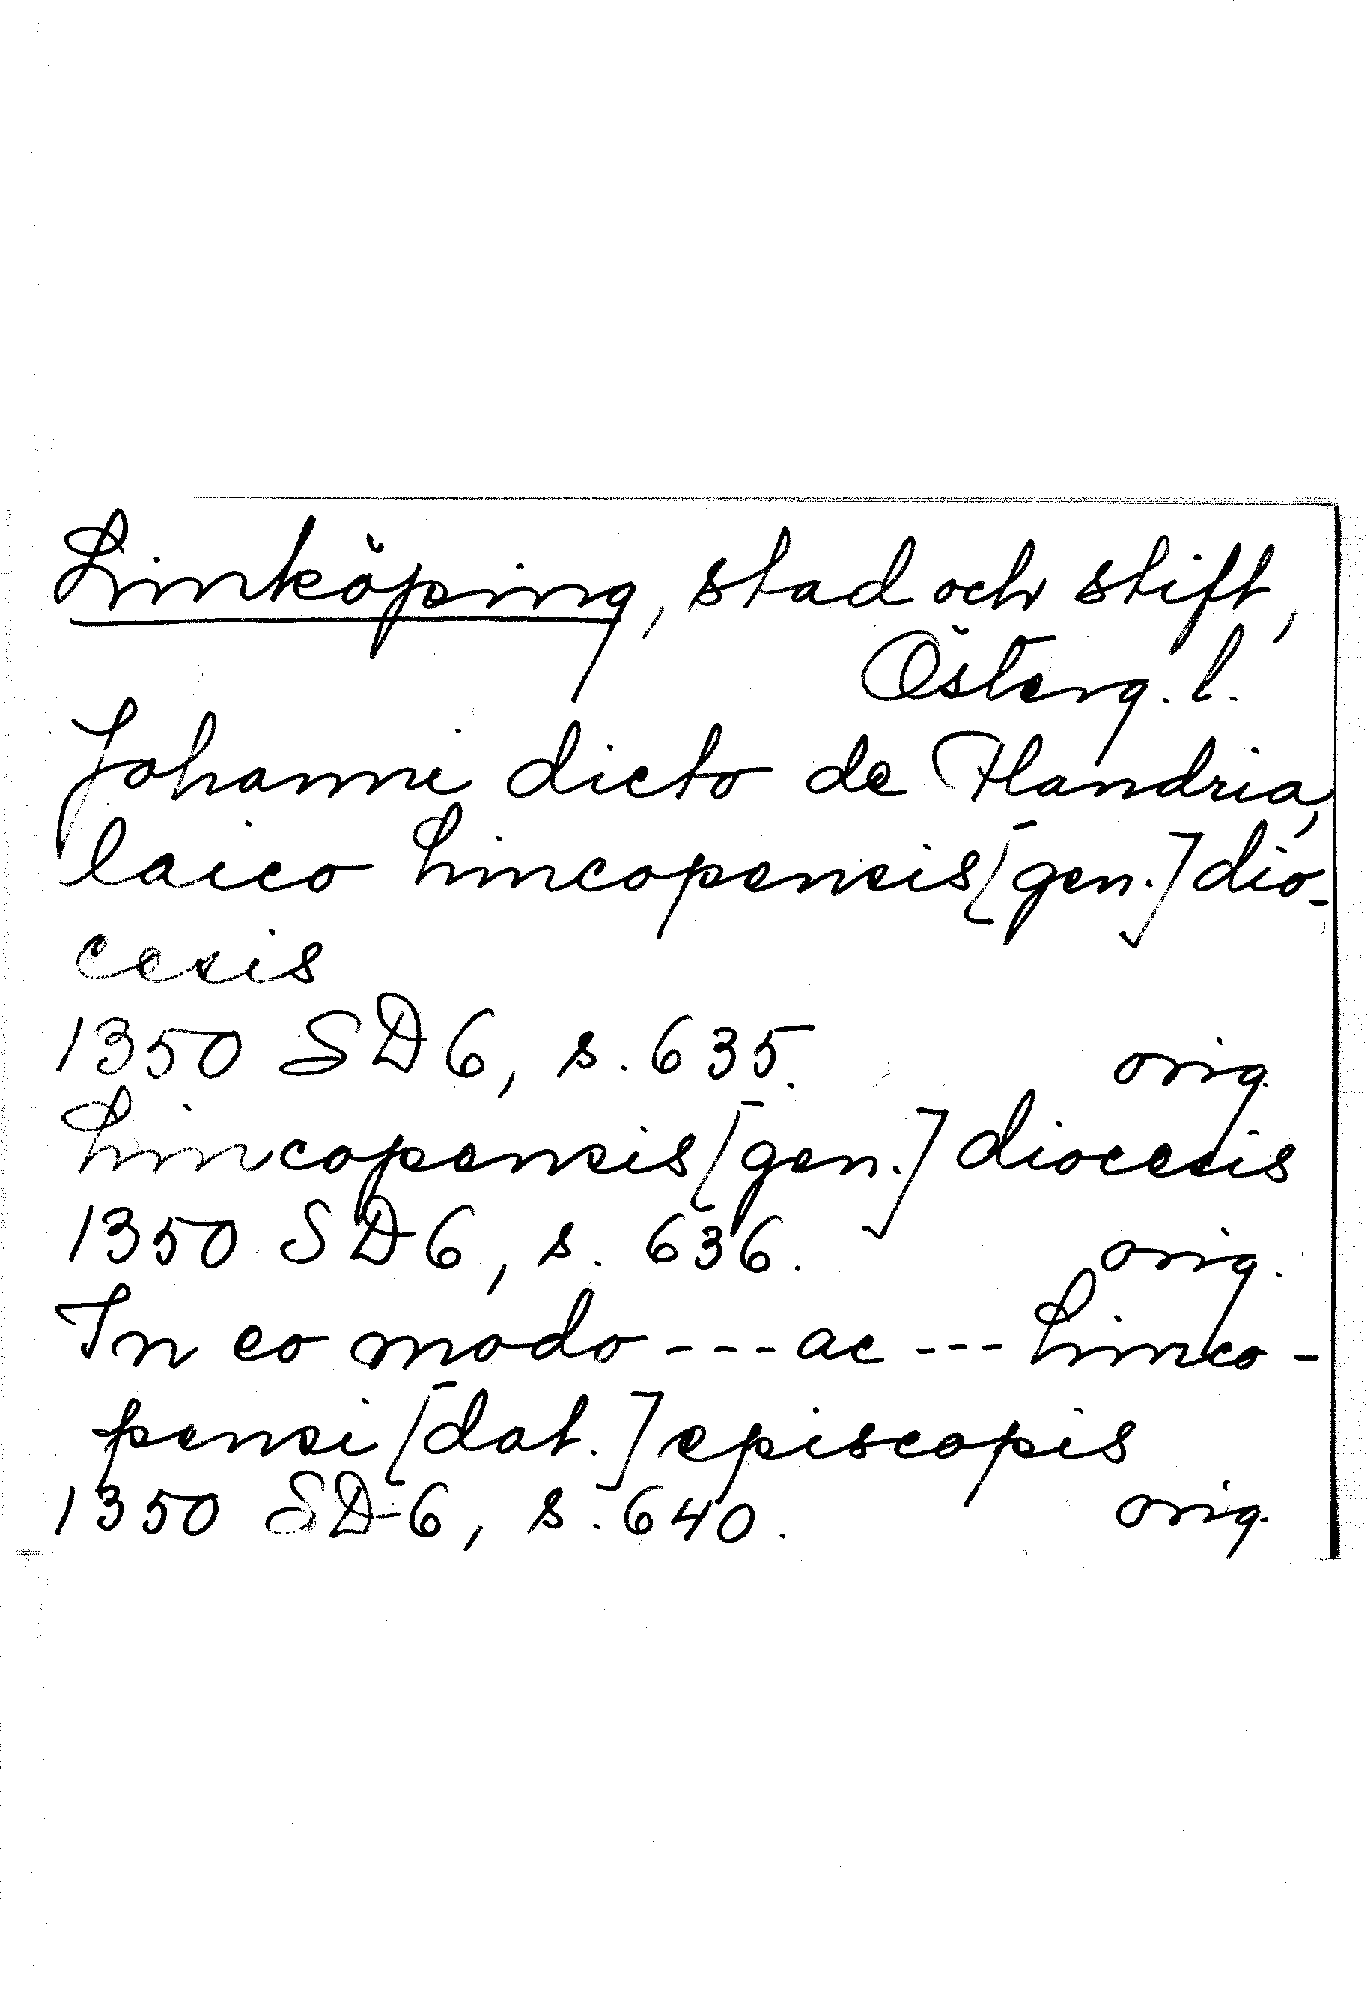 Linköping, stad och stift,
Österg. l.
Johanni dicto de Flandria,
laico Lincopensis [gen.] dio-
cesis
1350 SD 6, s. 635. orig.
Lincopensis [gen.] diocesis
1350 SD 6, s. 636. orig.
In eo modo --- ac --- Linco-
pensi [dat.] episcopis
1350 SD 6, s. 640. orig.